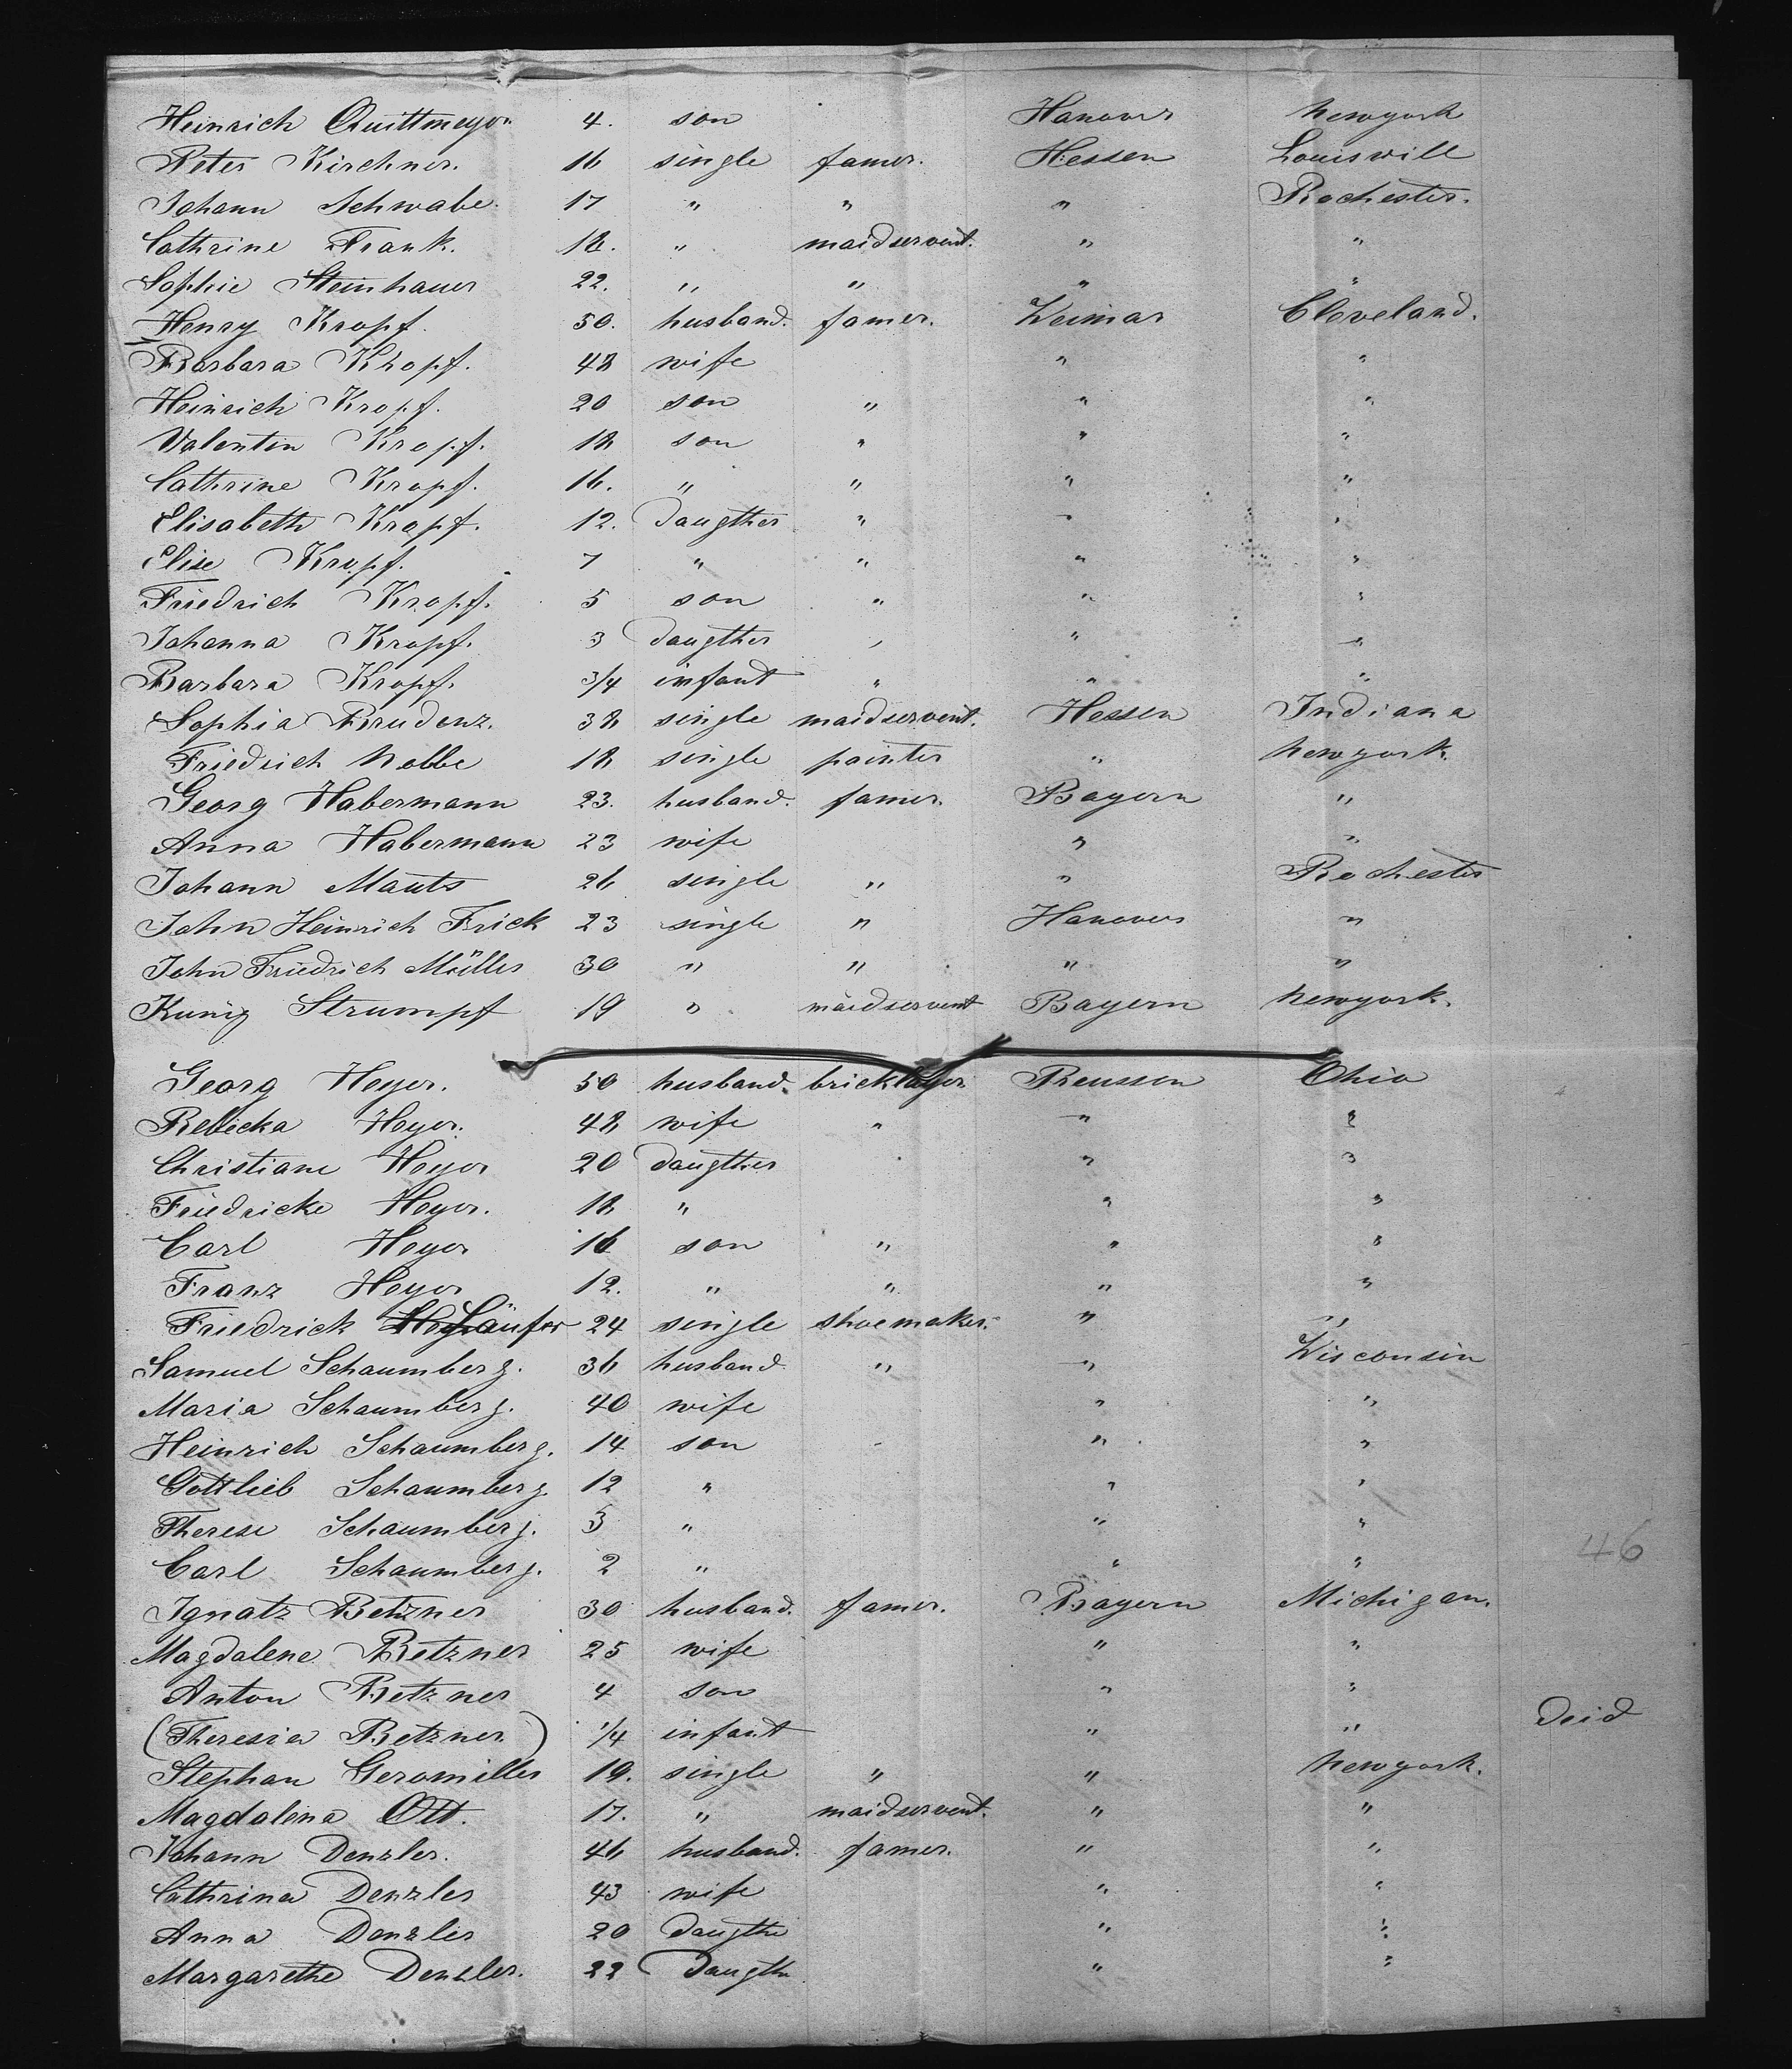 Heinrich Quittmeyer 4. son Hanover Newyork
Peter Kirchner. 16 single famer. Hessen Louiswill
Johann Schwabe. 17 " " " Rochester.
Cathrine Frank. 18. " maidservent. " "
Sophie Steinhauer 22. " " " "
Henry Kropf. 50. husband. famer. Weimar Cleveland.
Barbara Kropf. 48 wife " "
Heinrich Kropf. 20 son " " "
Valentin Kropf. 18 son " " "
Cathrine Kropf. 16. " " " "
Elisabeth Kropf. 12. daugther " " "
Elise Kropf. 7 " " " "
Friedrich Kropf. 5 son " " "
Johanna Kropf. 3 daugther " " "
Barbara Kropf. 3/4 infant " " "
Sophia Prudenz. 38 single maidservent. Hessen Indiana
Friedrich Nolbe 18 single painter " Newyork.
Georg Habermann 23. husband. famer. Bayern "
Anna Habermann 23 wife " "
Johann Mauts 26 single " " Rochester
John Heinrich Frick 23 single " Hanover "
John Friedrich Müller 30 " " " "
Kunig Strumpf 19 " maidservent Bayern Newyork.
Georg Heyer. 50 husband. bricklayer Preussen Ohio
Rebecka Heyer. 48 wife " " "
Christiane Heyer 20 daugther " "
Friedricke Heyer. 18 " " "
Carl Heyer 16 son " " "
Franz Heyer 12. " " " "
Friedrick Läufer 24 single shoemaker. " "
Samuel Schaumberg. 36 husband " " Wisconsin
Maria Schaumberg. 40 wife " "
Heinrich Schaumberg. 14 son " "
Gottlieb Schaumberg. 12 " " "
Therese Schaumberg. 5 " " "
46
Carl Schaumberg. 2 " " "
Ignatz Betzner 30 husband. famer. Bayern Michigan.
Magdalene Betzner 25 wife " "
Anton Betzner 4 son " "
(Theresia Betzner) 1/4 infant " " Deid
Stephan Geromiller 19. single " " Newyork.
Magdalena Ott. 17. " maidservent. " "
Johann Denzler. 46 husband. famer. " "
Cathrina Denzler 43 wife " "
Anna Denzler 20 daugthe " "
Margarethe Denzler. 22 Daugthe " "